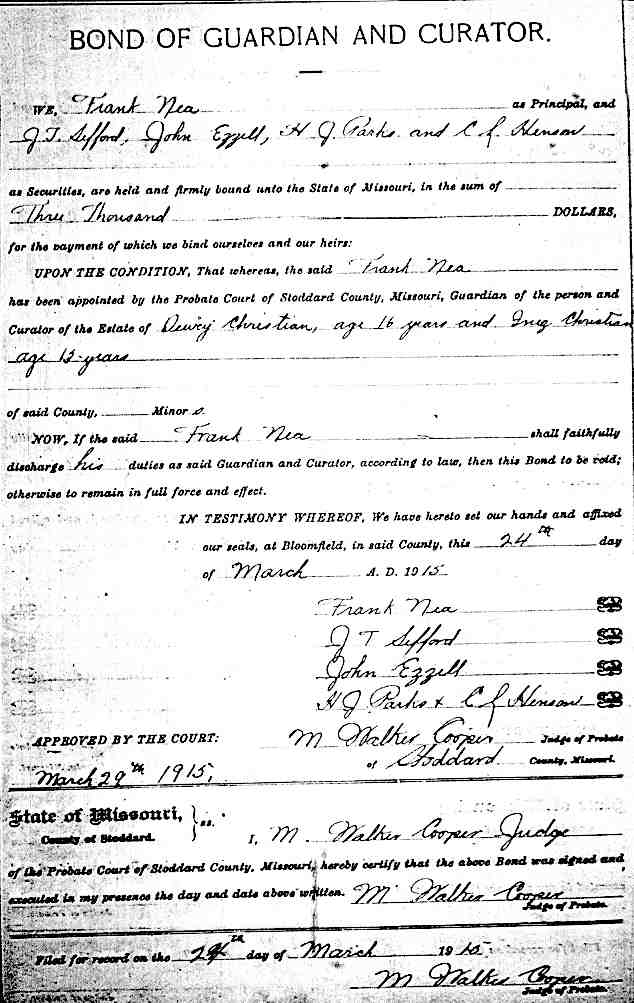 BOND OF GUARDIAN AND CURATOR.
WE, Frank Nea as Principal, and
J.T. Sifford, John Ezzell, H J Parks and C L Henson
as Securities, are held and firmly bound unto the State of Missouri, in the sum of
Three Thousand DOLLARS,
for the payment of which we bind ourselves and our heirs:
UPON THE CONDITION, That whereas, the said Frank Nea
has been appointed by the Probate Court of Stoddard County, Missouri, Guardian of the person and
Curator of the Estate of Dewey Christian, age 16 years and Christian
age 13 years
of said County, Minor s.
NOW, If the said Frank Nea shall faithfully
discharge his duties as said Guardian and Curator, according to law, then this Bond to be void;
otherwise to remain in full force and effect.
IN TESTIMONY WHEREOF, We have hereto set our hands and affixed
our seals, at Bloomfield, in said County, this 24th day
of March A. D. 1915
Frank Nea
J T Sifford
John Ezzell
H J Parks & C L Henson
APPROVED BY THE COURT: M Walker Cooper Judge of Probate
of Stoddard County, Missouri.
March 29th 1915,
State of Missouri, } ss.
County of Stoddard.
I, M. Walker Cooper Judge
of the Probate Court of Stoddard County, Missouri, hereby certify that the above Bond was signed and
executed in my presence the day and date above written. M Walker Cooper
Judge of Probate.
Filed for record on the day of March 1915
M Walker Cooper
Judge of Probate.